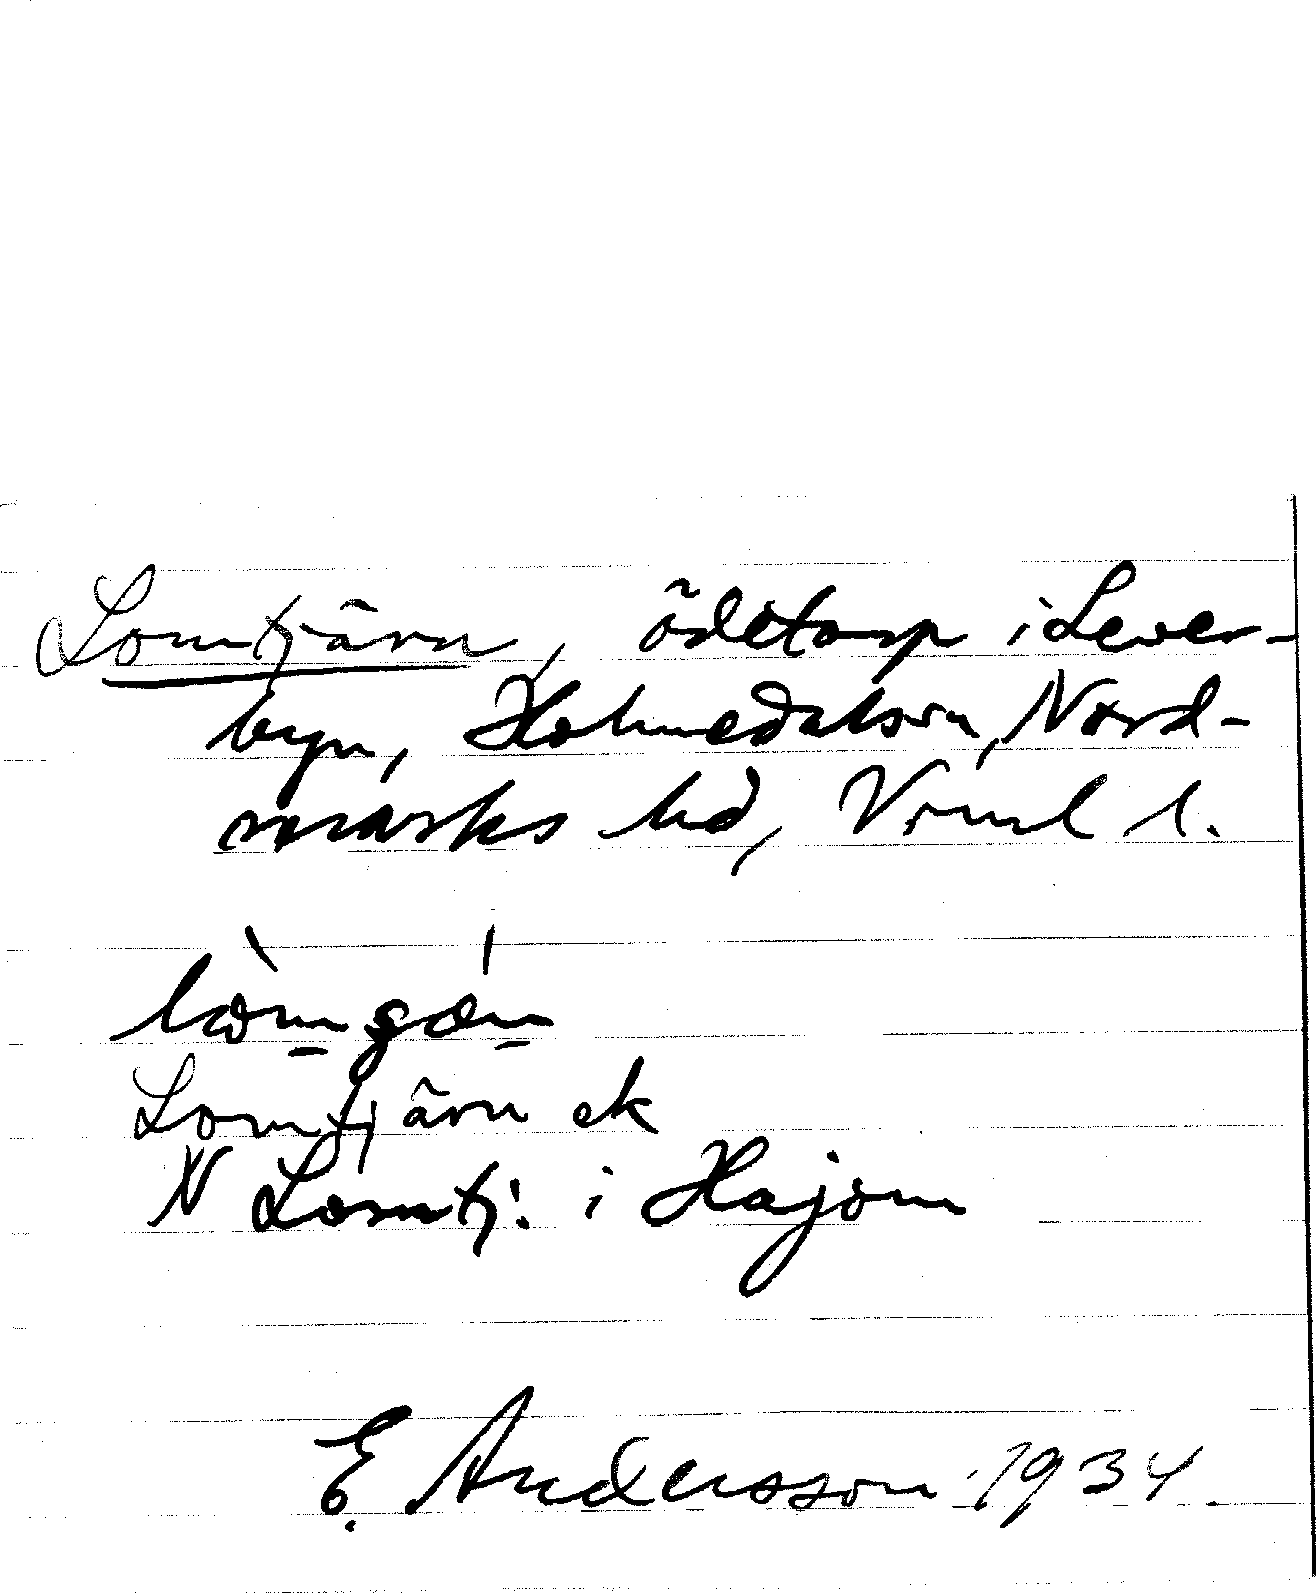 Lomtjärn, ödetorp i Lever-
byn, Holmedals sn, Nord-
marks hd, Vrml l.
Lomtjärn ek
N Lomtj: i Hajom
E. Andersson 1934.